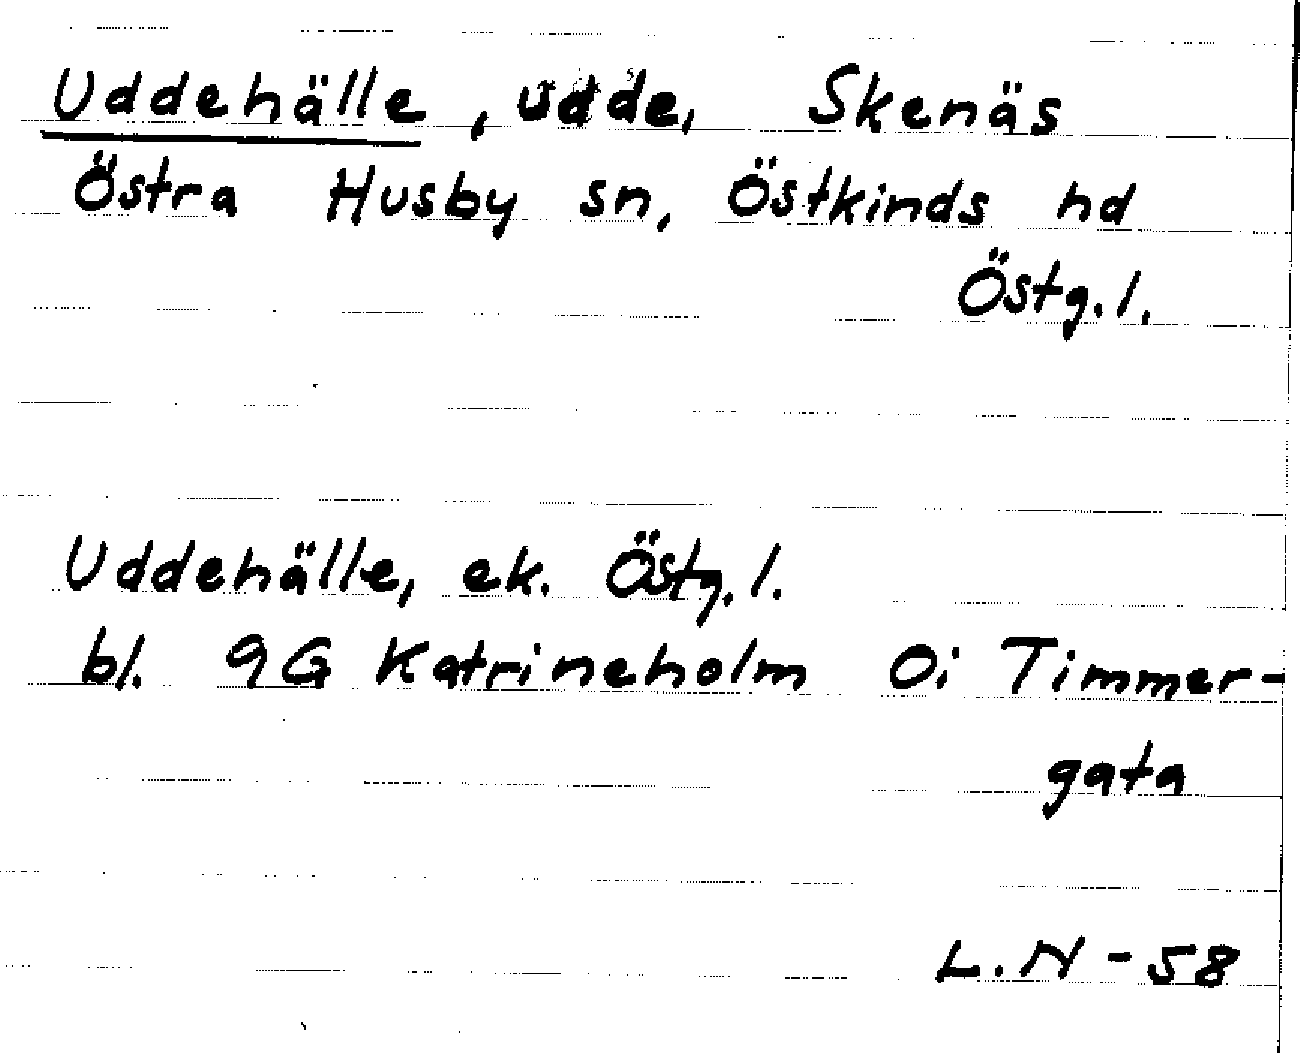 Uddehälle, udde, Skenäs
Östra Husby sn, Östkinds hd
Östg. l.
Uddehälle, ek. Östg. l.
bl. 9G Katrineholm Oi Timmer-
gata
L.N - 58